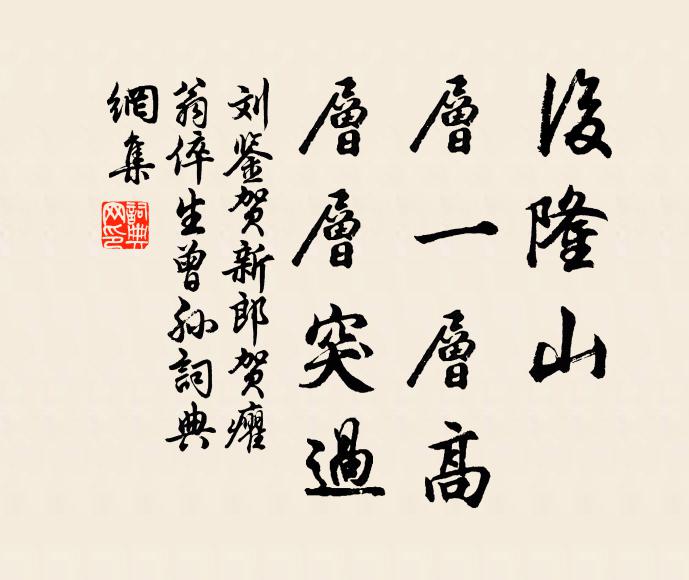 後隆山
層一層高
層層突過
刘鉴贺新郎贺癯
翁倅生曾孙詞典
網集
詞典
网印